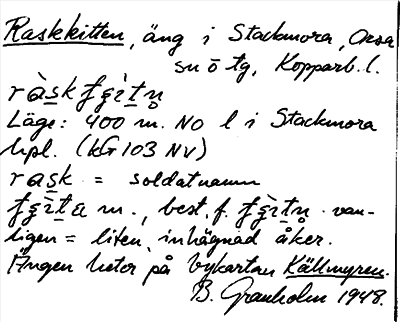 Raskkitten, äng i Stackmora, Orsa
sn ö tg, Kopparb. l.
Läge: 400 m. NO l i Stackmora
bpl. (kG 103 NV)
rask = soldatnamn
m., best. f. van-
ligen = liten, inhägnad åker.
Ängen heter på bykartan Källmyren.
B. Granholm 1948.